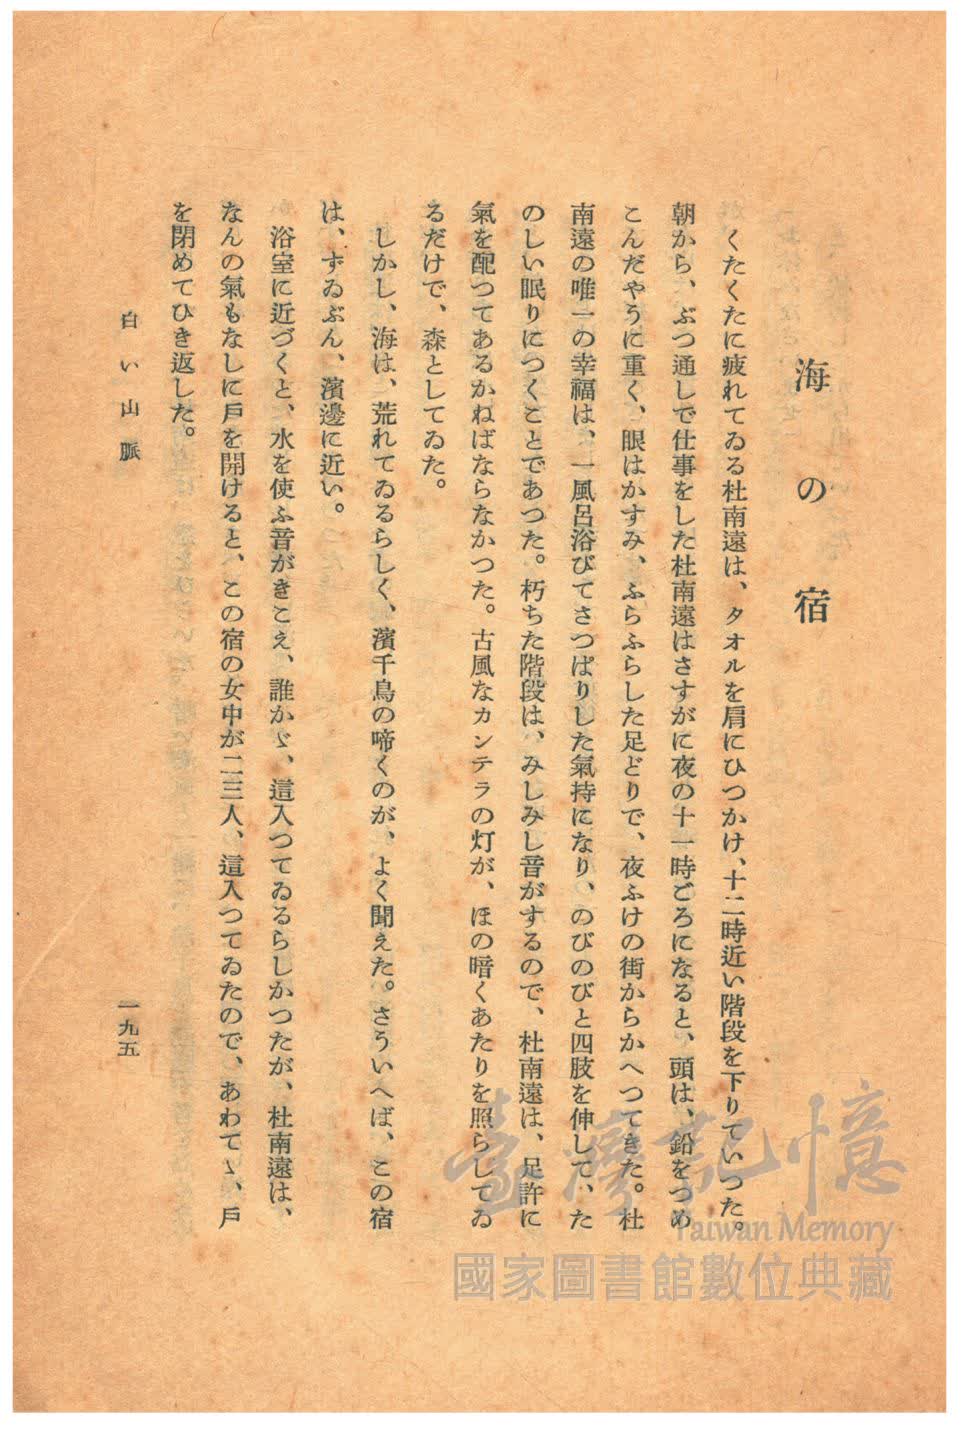 海の宿
くたくたに疲れてゐる杜南遠は、タオルを肩にひつかけ、十二時近い階段を下りていつた。
朝から、ぶつ通しで仕事をした杜南遠はさすがに夜の十一時ごろになると、頭は、鉛をつめ
こんだやうに重く、眼はかすみ、ふらふらした足どりで、夜ふけの街からかへつてきた。杜
南遠の唯一の幸福は、一風呂浴びてさつぱりした氣持になり、のびのびと四肢を伸して、た
のしい眠りにつくことであつた。朽ちた階段は、みしみし音がするので、杜南遠は、足許に
氣を配つてあるかねばならなかつた。古風なカンテラの灯が、ほの暗くあたりを照らしてゐ
るだけで、森としてゐた。
しかし、海は、荒れてゐるらしく、濱千鳥の啼くのが、よく聞えた。さういへば、この宿
は、ずゐぶん、濱邊に近い。
浴室に近づくと、水を使ふ音がきこえ、誰かゞ、這入つてゐるらしかつたが、杜南遠は、
なんの氣もなしに戶を開けると、この宿の女中が二三人、這入つてゐたので、あわてゝ、戶
を閉めてひき返した。
白い山脈
一九五
臺灣記憶
Taiwan Memory
國家圖書館數位典藏